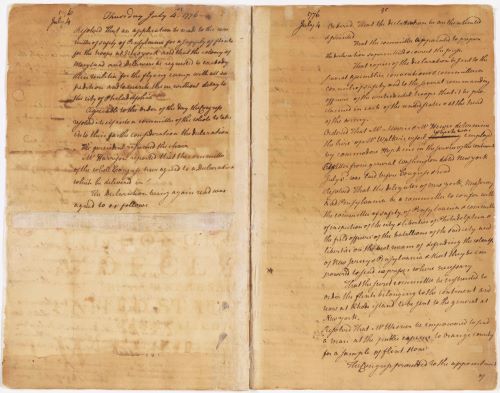 1776
July 4
Thursday July 4. 1776
Resolved That an application be made to the com
mittee of safety of Pensylvania for a supply of flints
for the troops at New york and that the colony of
Maryland and Delaware be requested to embody
their militia for the flying camp with all ex
pedition and to march them without delay to
the city of Philadelphia.
Agreeable to the order of the day the Congress
resolved itself into a committee of the whole to take
into their farther consideration the declaration
The president resumed the chair
Mr Harrison reported that the committee
of the whole Congress have agreed to a Declaration
which he delivered in
The Declaration being again read was
agreed to as follows
1776
July 4
Ordered That the declaration be authenticated
& printed
That the committee appointed to prepare
the declaration superintend & correct the press.
That copies of the declaration be sent to the
several assemblies, conventions & committees or
councils of safety and to the several commanding
officers of the continental troops that it be pro
claimed in each of the united states & at the head
of the army.
Ordered That Mr Morris & Mr Heyward determine
the hire of Mr Walker's
by commodore Hopkins in the service of the continent
A letter from general Washington dated New york
July was laid before Congress & read
Resolved That the delegates of New york, New jersey
and Pensylvania be a committee to confer with
the committee of safety of Pensylvania & committee
of inspection of the city & liberties of Philadelphia &
the field officers of the battalions of the said city and
liberties on the best means of defending the colonies
of New Jersey & Pensylvania & that they be em
powered to send expresses where necessary
That the secret committee be instructed to
order the flints belonging to the continent and
now at Rhode island to be sent to the general at
New york.
Resolved That Mr Wisner be empowered to send
a man at the public expence to Orange county
for a sample of flint stone
The Congress proceeded to the appointment
of